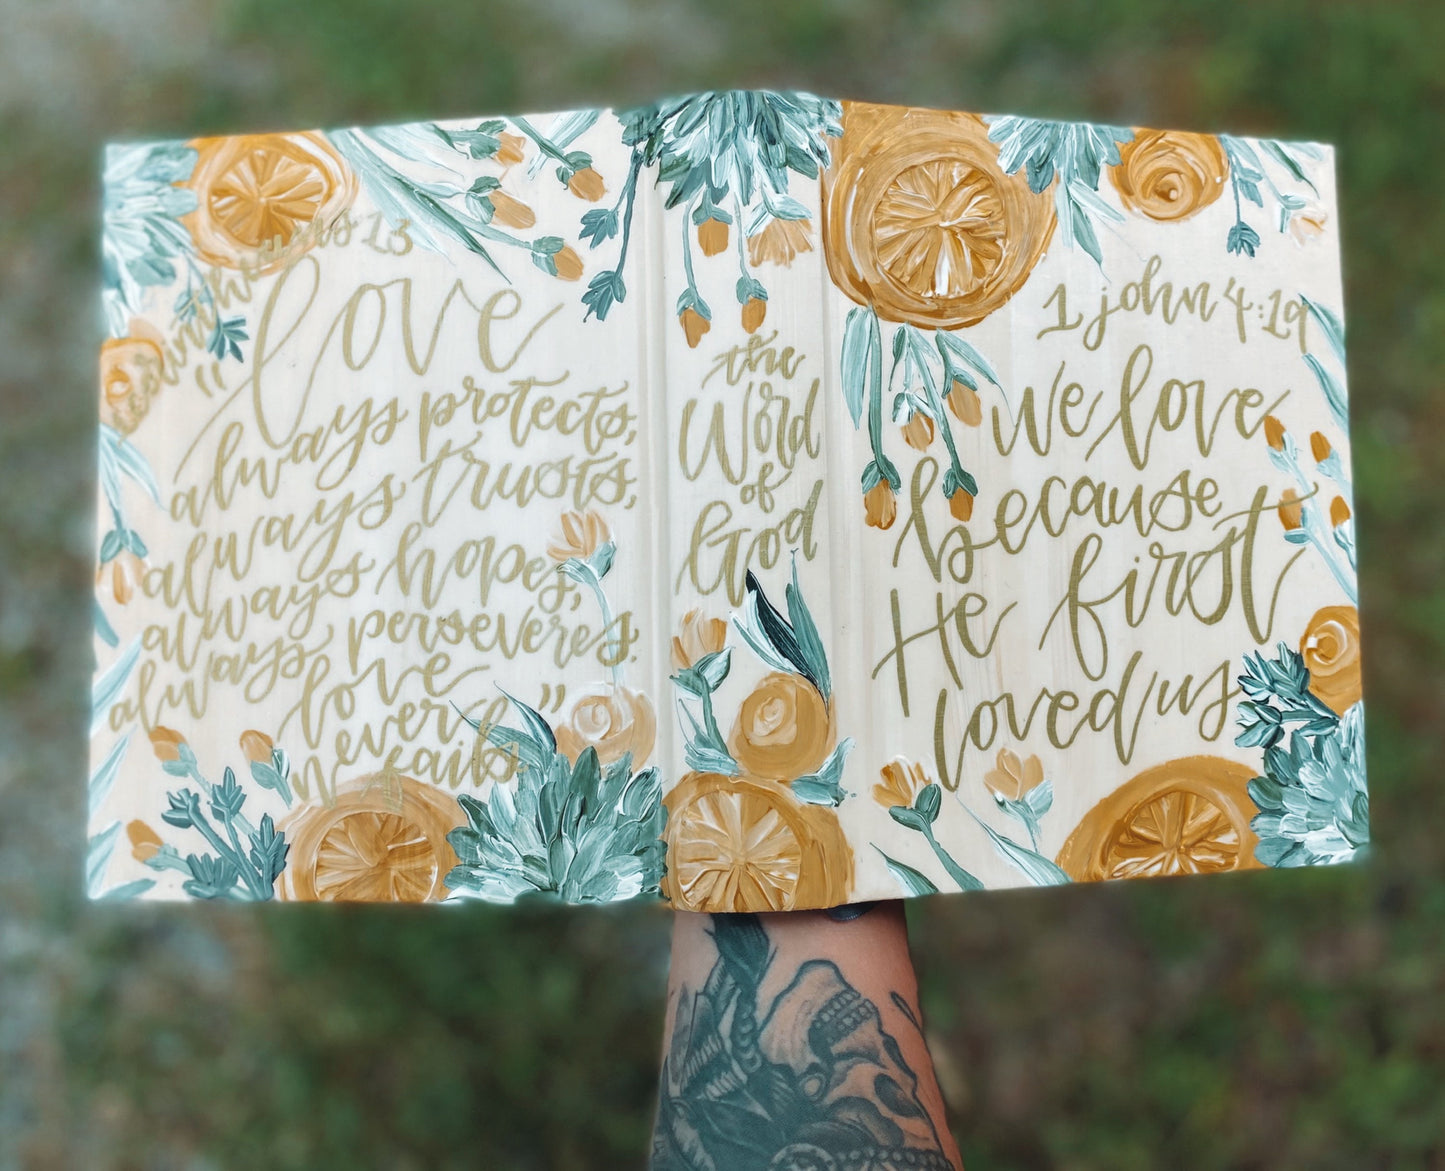 corinthians 13
"love
always protects,
always trusts,
always hopes,
always perseveres.
love
never fails."
the
Word
of
God
1 john 4:19
We love
because
He first
loved us